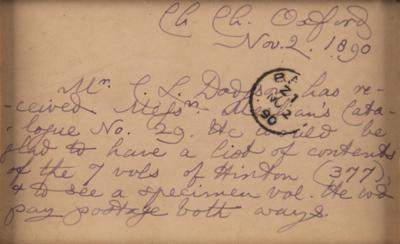 Ch. Ch. Oxford
Nov. 2. 1890
Mr. C. L. Dodgson has re-
-ceived Messrs. Catalogue
-logue No. 29. He would be
glad to have a list of contents
of the 7 vols of Hinton (377),
& to see a specimen vol. He wd
pay postage both ways.